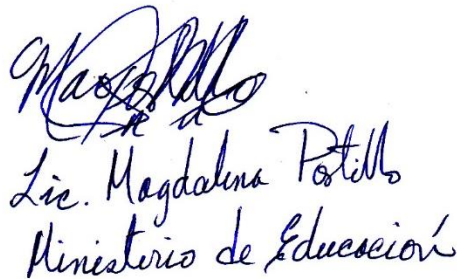 Lic. Magdalena Portillo
Ministerio de Educación